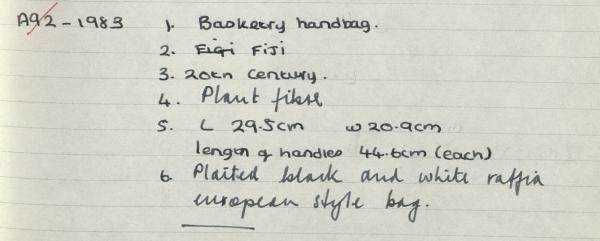 A92-1983 1. Basketry handbag.
2. Figi FIJI
3. 20th Century.
4. Plant fibre
5. L 29.5cm W 20.9cm
length of handles 44.6cm (each)
6. Plaited black and white raffia
european style bag.